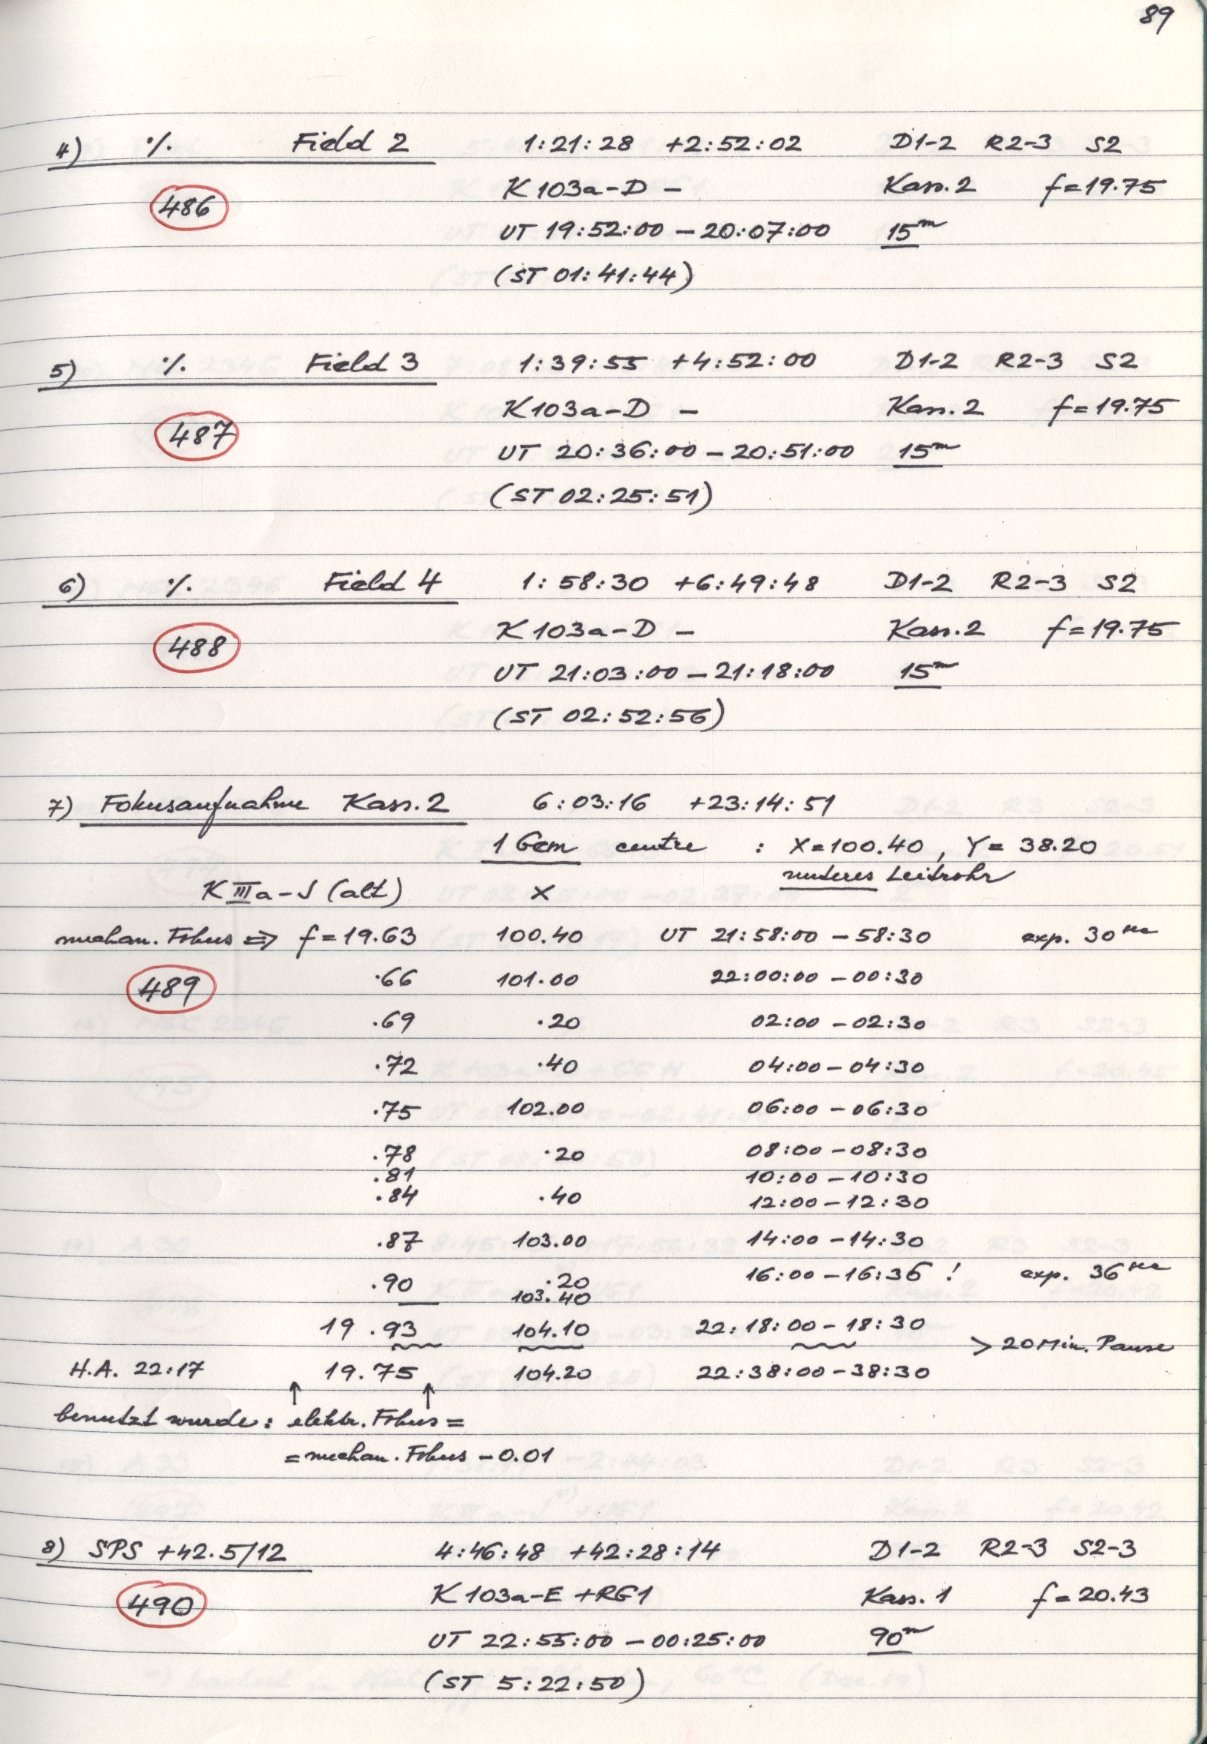 89
4) ·/. Field 2 1:21:28 +2:52:02 D1-2 R2-3 S2
486 K 103a-D - Kass.2 f=19.75
UT 19:52:00 - 20:07:00 15m
(ST 01:41:44)
5) ·/. Field 3 1:39:55 +4:52:00 D1-2 R2-3 S2
487 K 103a-D - Kass.2 f=19.75
UT 20:36:00 - 20:51:00 15m
(ST 02:25:51)
6) ·/. Field 4 1:58:30 +6:49:48 D1-2 R2-3 S2
488 K 103a-D - Kass.2 f=19.75
UT 21:03:00 - 21:18:00 15m
(ST 02:52:56)
7) Fokusaufnahme Kass.2 6:03:16 +23:14:51
1 Gem centre : X=100.40, Y=38.20
unteres Leitrohr
K IIIa-J (alt) X
mechan. Fokus ⇒ f=19.63 100.40 UT 21:58:00 - 58:30 exp. 30sec
489 .66 101.00 22:00:00 - 00:30
.69 .20 02:00 - 02:30
.72 .40 04:00 - 04:30
.75 102.00 06:00 - 06:30
.78 .20 08:00 - 08:30
.81 10:00 - 10:30
.84 .40 12:00 - 12:30
.87 103.00 14:00 - 14:30
.90 .20 16:00 - 16:36 ! exp. 36sec
103.40
19.93 104.10 22:18:00 - 18:30
> 20 Min. Pause
H.A. 22:17 19.75 104.20 22:38:00 - 38:30
↑ ↑
benutzt wurde: elektr. Fokus =
= mechan. Fokus - 0.01
8) SPS +42.5/12 4:46:48 +42:28:14 D1-2 R2-3 S2-3
490 K 103a-E +RG1 Kass. 1 f=20.43
UT 22:55:00 - 00:25:00 90m
(ST 5:22:50)